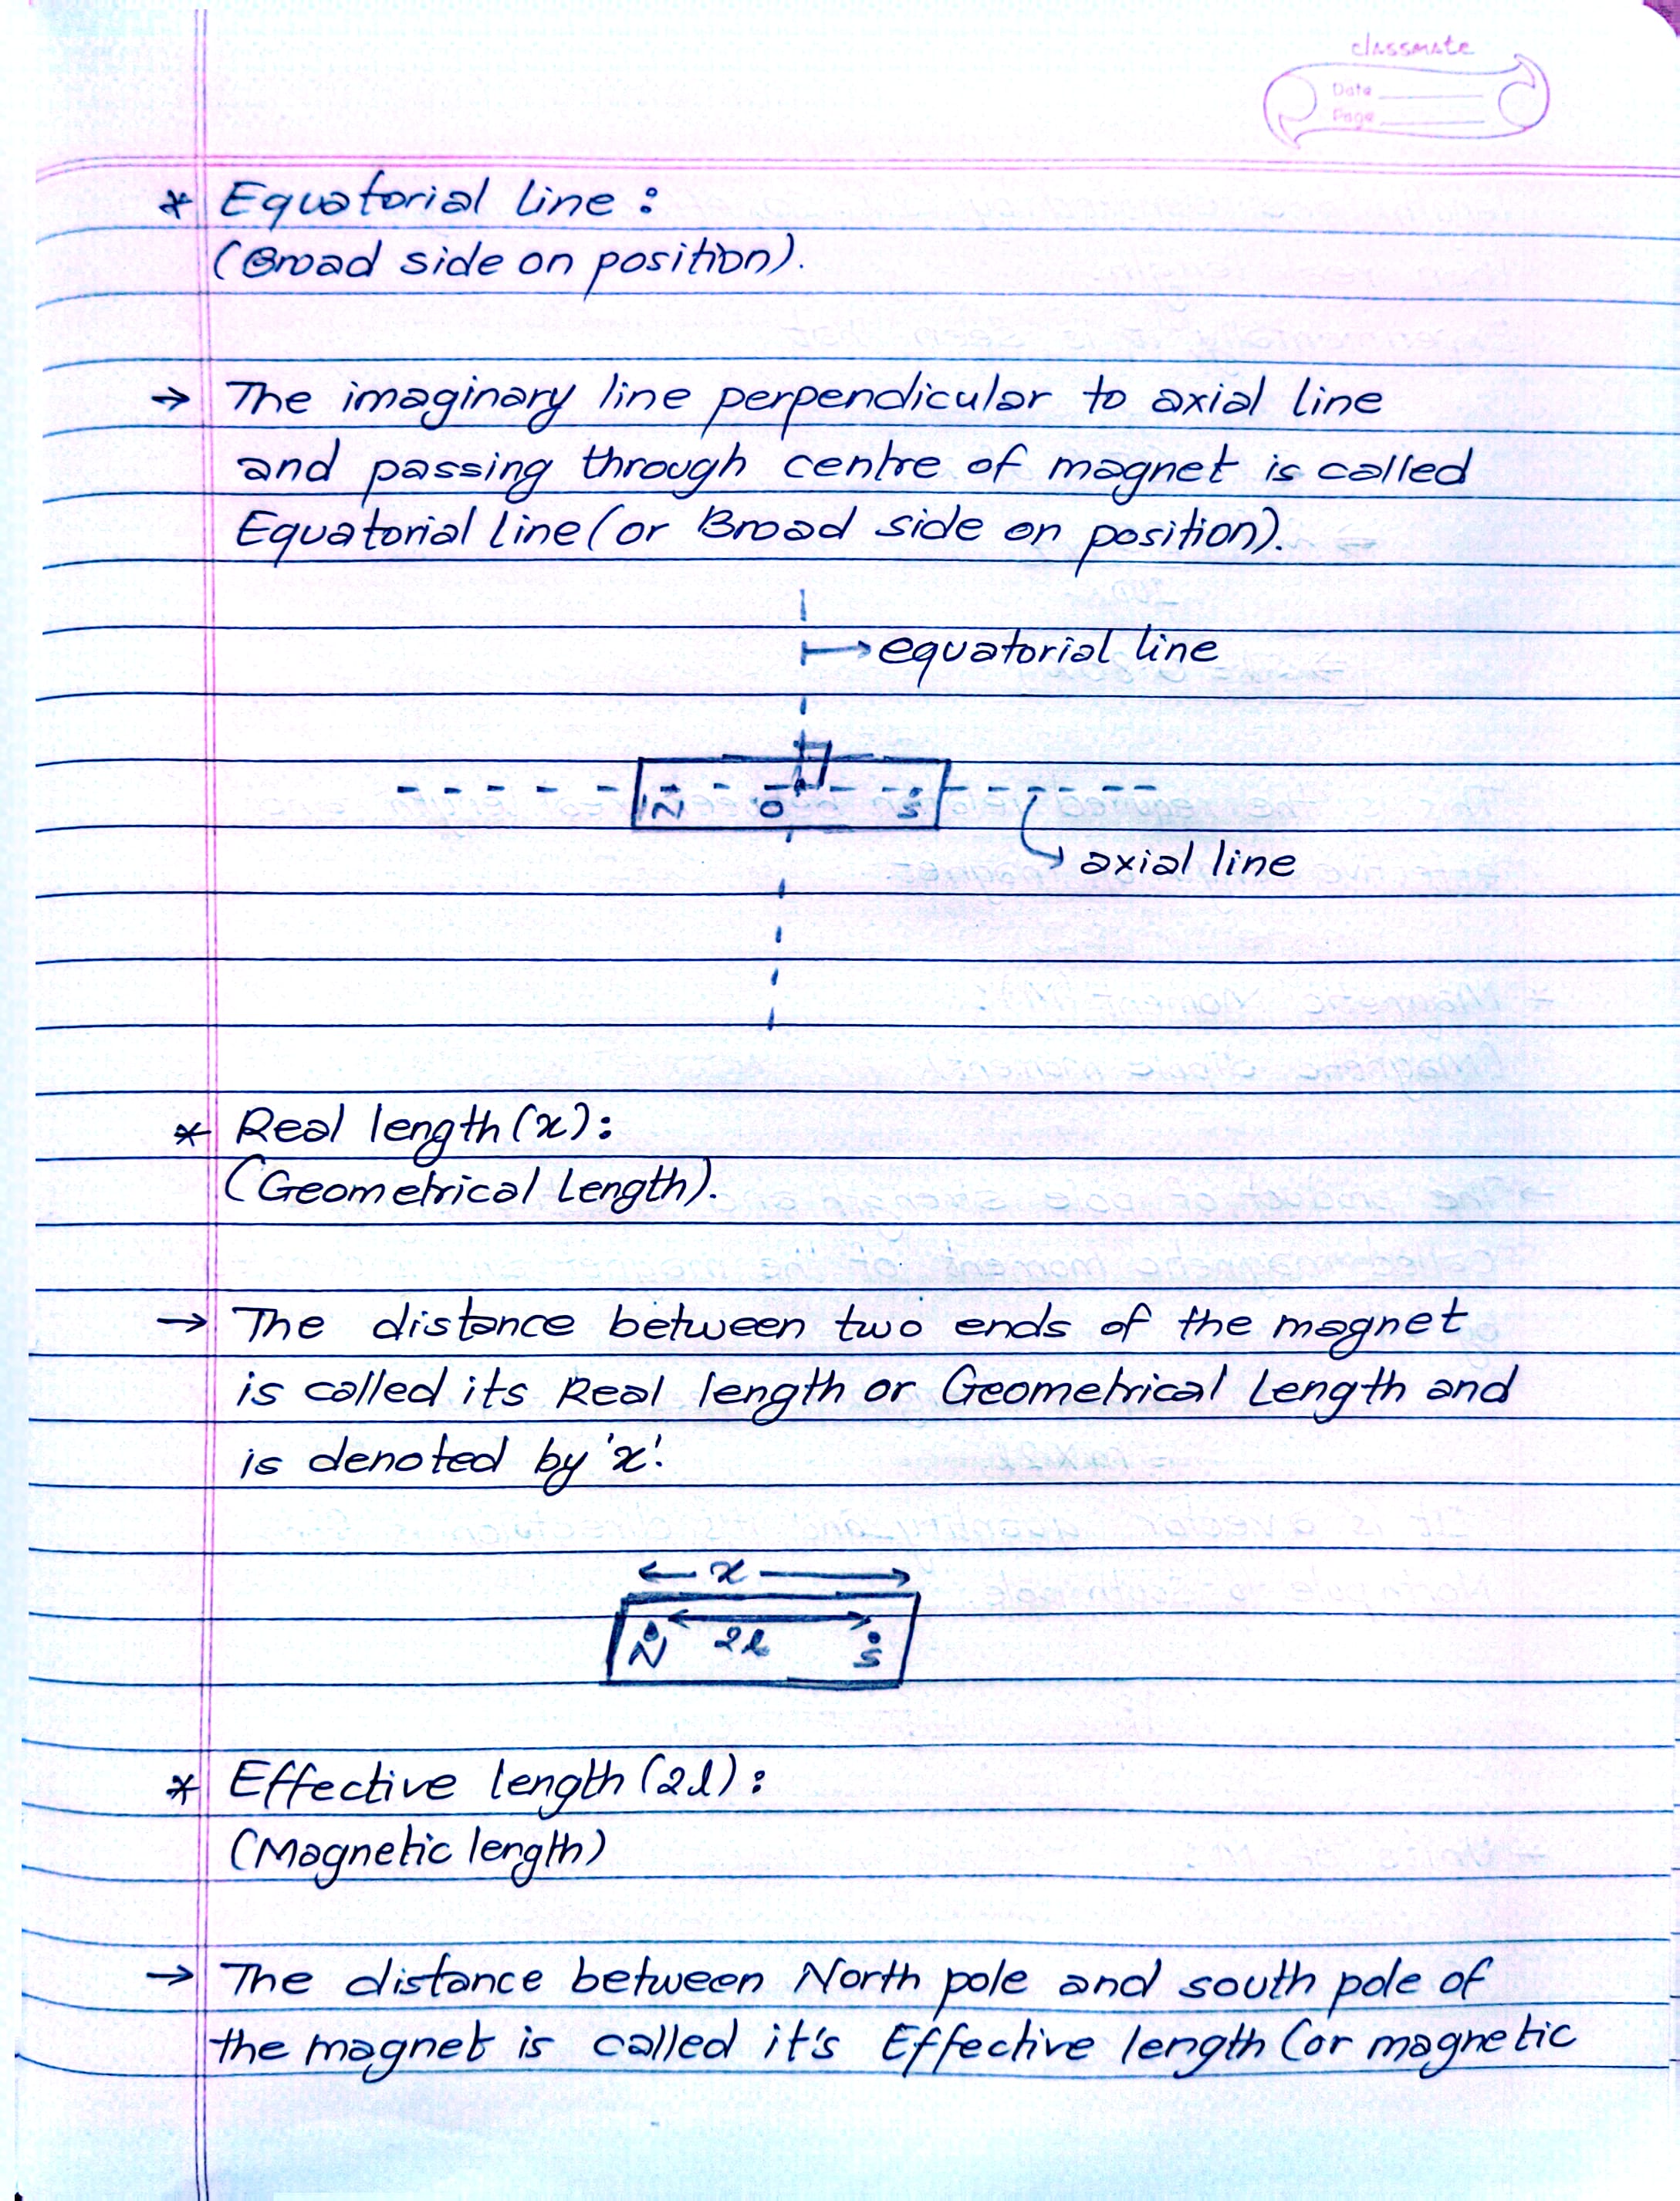 classmate
Date
Page
* Equatorial line :
(Broad side on position).
→ The imaginary line perpendicular to axial line
and passing through centre of magnet is called
Equatorial line (or Broad side on position).
→ equatorial line
N O S
axial line
* Real length (x) :
(Geometrical Length).
→ The distance between two ends of the magnet
is called its Real length or Geometrical Length and
is denoted by 'x'.
x
N 2l S
* Effective length (2l) :
(Magnetic length)
→ The distance between North pole and south pole of
the magnet is called it's Effective length (or magnetic